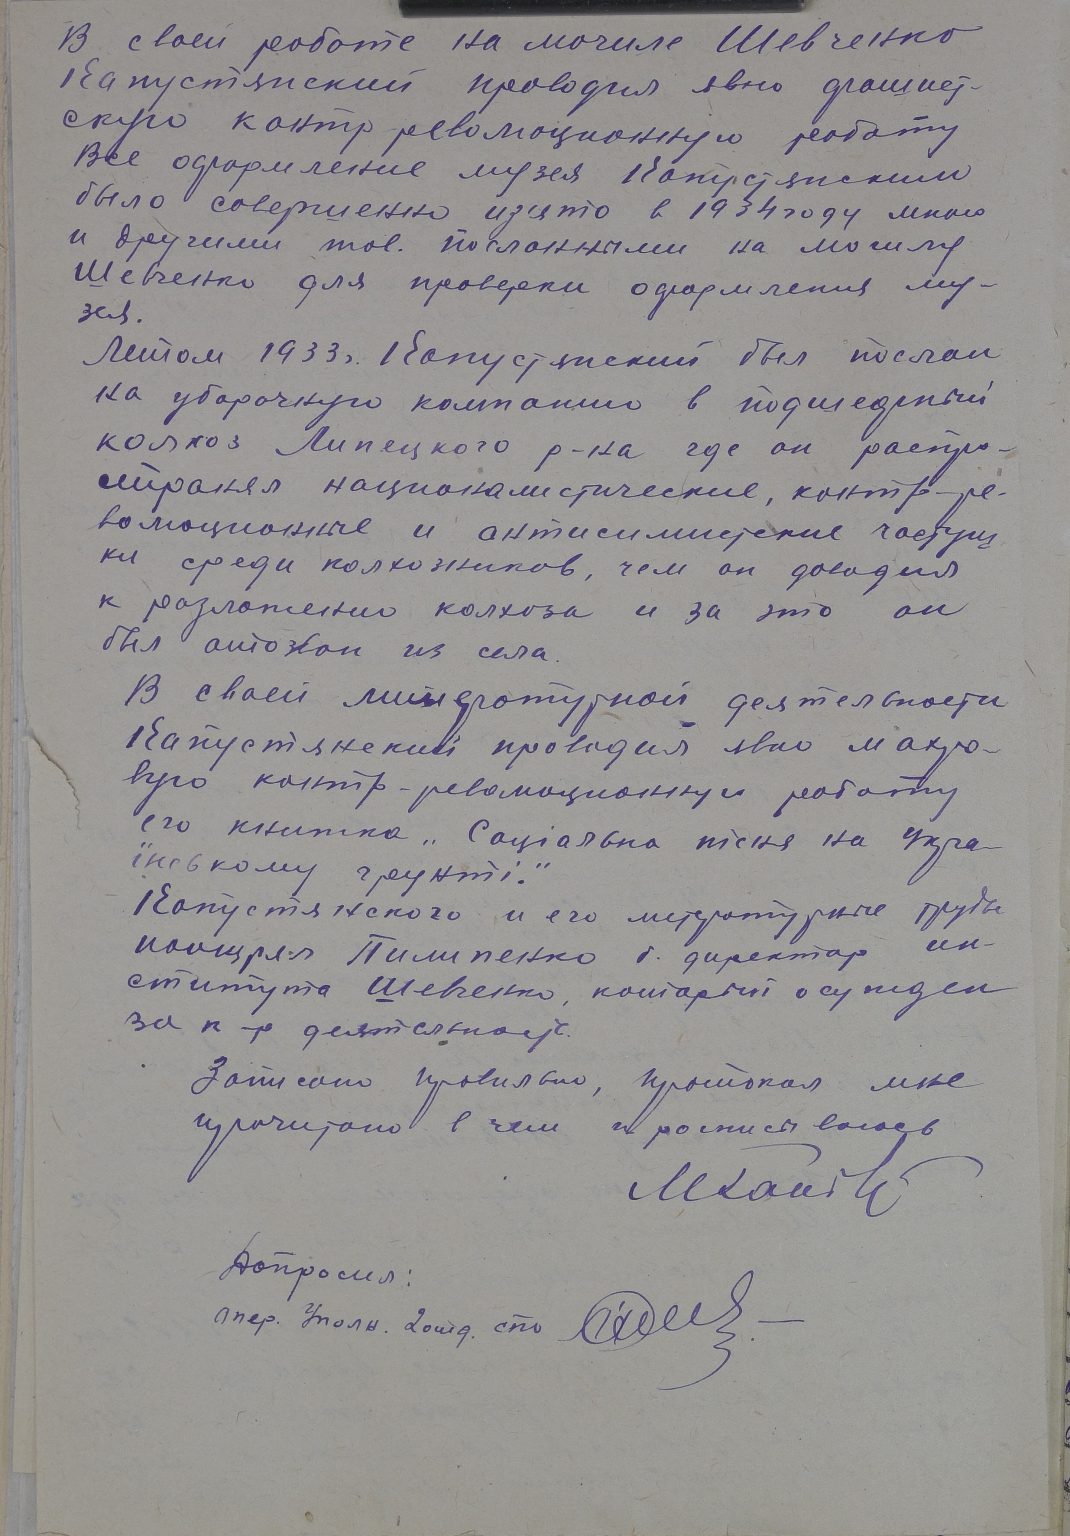 В своей работе на могиле Шевченко
Капустянский проводил явно фашист-
скую контр революционную работу
Все оформление музея Капустянским
было совершенно изъято в 1934 году мною
и другими тов. посланными на могилу
Шевченко для проверки оформления му-
зея.
Летом 1933 г. Капустянский был послан
на уборочную компанию в подшефный
колхоз Липецкого р-на где он распро-
странял националистические, контр-ре-
волюционные и антисимитские частуш
ки среди колхозников, чем он доводил
к разложению колхоза и за это он
был отозван из села.
В своей литературной деятельности
Капустянский проводил явно махро-
вую контр-революционную работу
его книжка „Соціальна пісня на Укра-
їнському ґрунті."
Капустянского и его литературные труды
поощрял Пилипенко б. директор ин-
ститута Шевченко, который осужден
за к-р деятельность.
Записано правильно, протокол мне
прочитано в чем и росписываюсь
Допросил:
Опер. Уполн. 2 отд. СПО